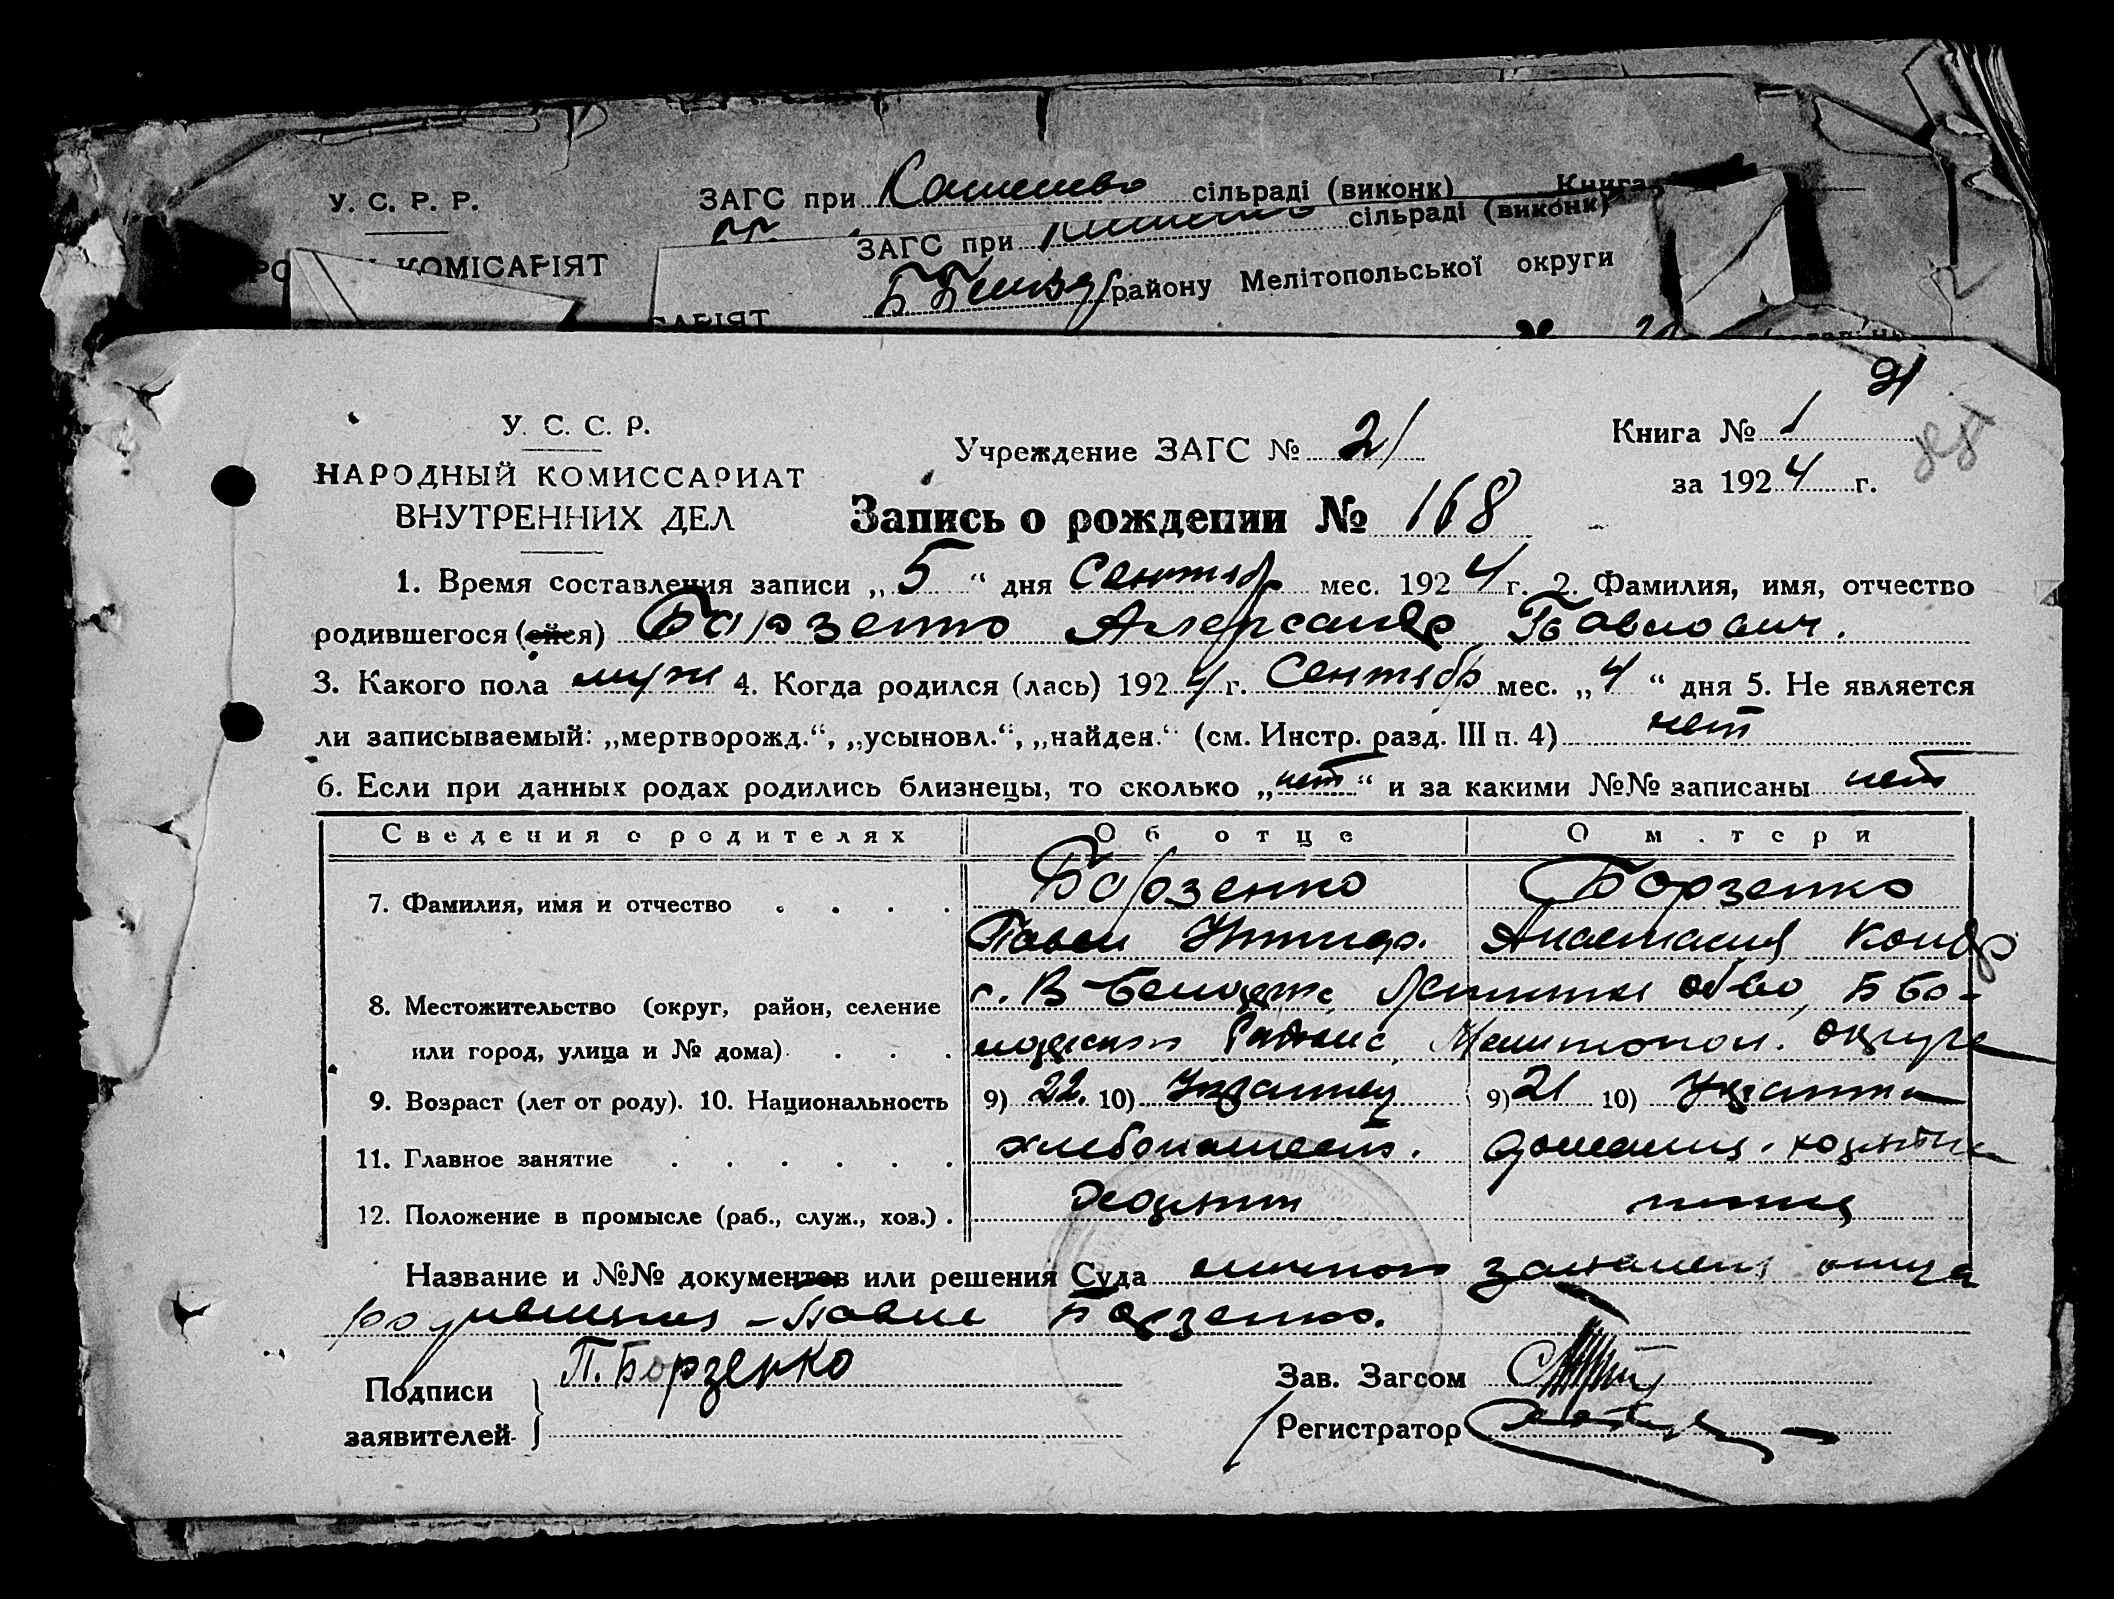 У. С. Р. Р.
ЗАГС при сільраді (виконк) Книга
ЗАГС при сільраді (виконк)
КОМІСАРІЯТ
району Мелітопольської округи
21
У. С. С. Р.
НАРОДНЫЙ КОМИССАРИАТ
ВНУТРЕННИХ ДЕЛ
Учреждение ЗАГС № 21
Книга № 1
за 1924 г.
Запись о рождении № 168
1. Время составления записи „5“ дня Сентябр мес. 1924 г. 2. Фамилия, имя, отчество
родившегося (ейся) Борзенко Александр Павлович.
3. Какого пола муж 4. Когда родился (лась) 1924 г. Сентябр мес. „4“ дня 5. Не является
ли записываемый: „мертворожд.“, „усыновл.“, „найден.“ (см. Инстр. разд. III п. 4) нет
6. Если при данных родах родились близнецы, то сколько „нет“ и за какими №№ записаны нет
Сведения о родителях Об отце О м.тери
7. Фамилия, имя и отчество Борзенко Борзенко
Павел Анастасия Кондр
8. Местожительство (округ, район, селение с. В-Белозерке
или город, улица и № дома) Мелитопол. округе
9. Возраст (лет от роду). 10. Национальность 9) 22. 10) Украинец 9) 21 10) Украинка
11. Главное занятие хлебопашест. домашн. хозяйка
12. Положение в промысле (раб., служ., хоз.)
Название и №№ документов или решения Суда личное отца
Борзенко.
Подписи заявителей П. Борзенко
Зав. Загсом
Регистратор